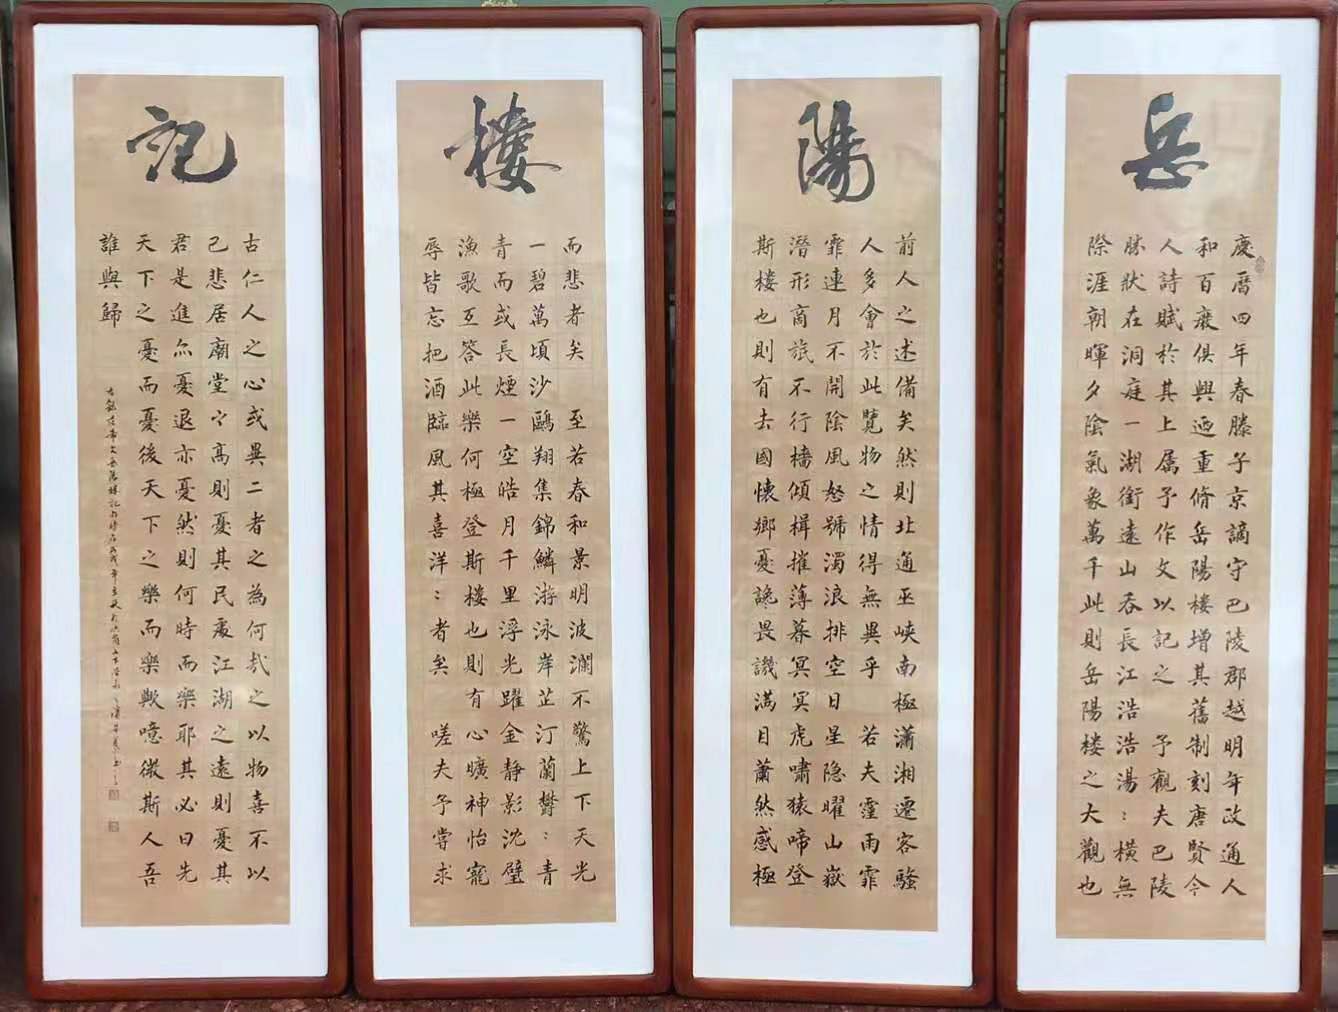 岳
慶曆四年春滕子京謫守巴陵郡越明年政通人
和百廢俱興迺重脩岳陽樓增其舊制刻唐賢今
人詩賦於其上属予作文以記之 予觀夫巴陵
勝狀在洞庭一湖銜遠山吞長江浩浩湯:橫無
際涯朝暉夕陰氣象萬千此則岳陽楼之大觀也
陽
前人之述備矣然則北通巫峽南極瀟湘遷客騷
人多會於此覽物之情得無異乎 若夫霪雨霏
霏連月不開陰風怒號濁浪排空日星隐曜山嶽
潛形商旅不行檣傾楫摧薄暮冥冥虎嘯猿啼登
斯樓也則有去國懷鄉憂讒畏譏滿目蕭然感極
樓
而悲者矣 至若春和景明波瀾不驚上下天光
一碧萬頃沙鷗翔集錦鱗游泳岸芷汀蘭鬱:青
青而或長煙一空皓月千里浮光躍金静影沈璧
漁歌互答此樂何極登斯楼也則有心曠神怡寵
辱皆忘把酒臨風其喜洋:者矣 嗟夫予嘗求
記
古仁人之心或異二者之為何哉之以物喜不以
己悲居廟堂之高則憂其民處江湖之遠則憂其
君是進亦憂退亦憂然則何時而樂耶其必曰先
天下之憂而憂後天下之樂而樂歟噫微斯人吾
誰與歸